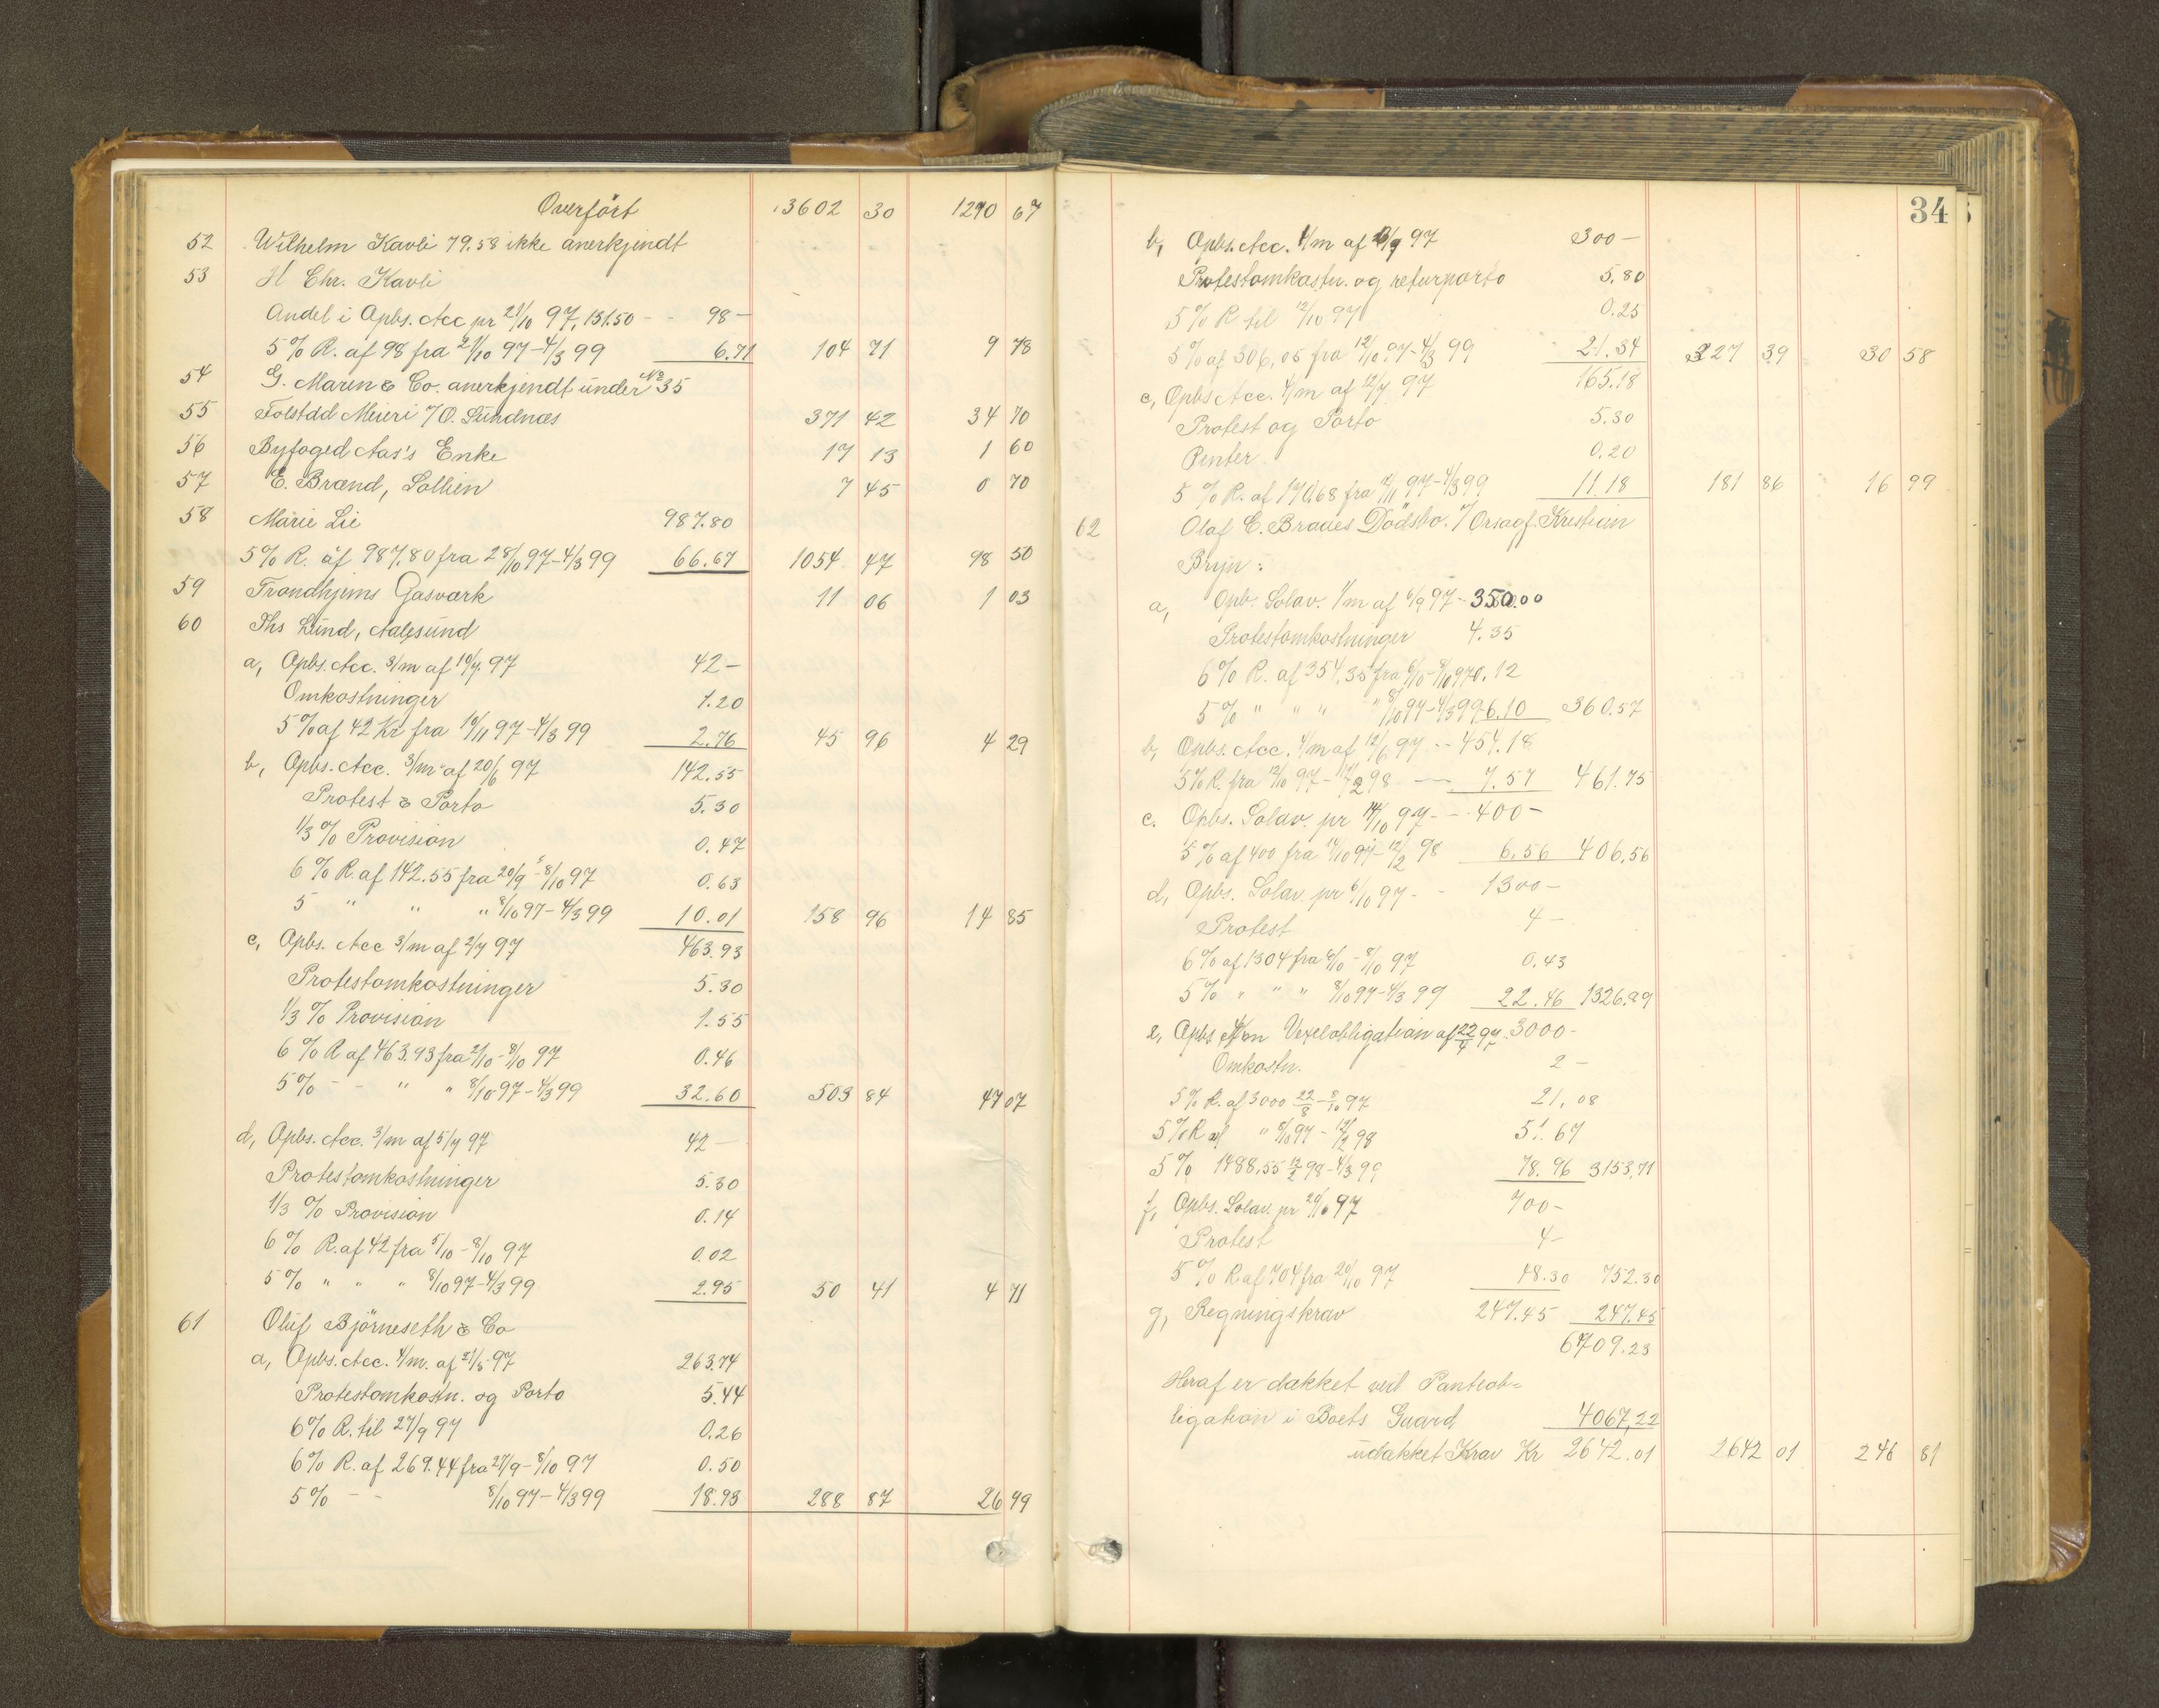 Overført 13602 30 1270 67
52 Wilhelm Kavli 79.58 ikke anerkjendt
53 H Chr. Kavli
Andel i Opbs. Acc pr 21/10 97, 131.50 - - 98 -
5 % R. af 98 fra 21/10 97 - 4/3 99 6.71 104 71 9 78
54 G. Maren & Co. anerkjendt under No 35
55 Tolstad Meieri 7/ O. Sundnæs 371 42 34 70
56 Byfoged Aas's Enke 17 13 1 60
57 E. Brænd, Lollien 7 45 0 70
58 Marie Lie 987.80
5% R. af 987.80 fra 28/10 97 - 4/3 99 66.67 1054 47 98 50
59 Trondhjems Gasværk 11 06 1 03
60 Ths Lund, Aalesund
a, Opbs. Acc. 3/m af 10/7 97 42 -
Omkostninger 1.20
5 % af 42 Kr fra 10/11 97 - 4/3 99 2.76 45 96 4 29
b, Opbs. Acc. 3/m af 20/6 97 142.55
Protest & Porto 5.30
1/3 % Provision 0.47
6 % R. af 142.55 fra 20/9 - 8/10 97 0.63
5 " " " 8/10 97 - 4/3 99 10.01 158 96 14 85
c, Opbs. Acc 3/m af 2/7 97 463.93
Protestomkostninger 5.30
1/3 % Provision 1.55
6 % R af 463.93 fra 2/10 - 8/10 97 0.46
5 % - - " " 8/10 97 - 4/3 99 32.60 503 84 47 07
d, Opbs. Acc. 3/m af 5/7 97 42 -
Protestomkostninger 5.30
1/3 % Provision 0.14
6 % R. af 42 fra 5/10 - 8/10 97 0.02
5 % " " " 8/10 97 - 4/3 99 2.95 50 41 4 71
61 Oluf Björneseth & Co
a, Opbs. Acc. 4/m. af 21/5 97 263.74
Protestomkostn. og Porto 5.44
6 % R. til 27/9 97 0.26
6 % R. af 269.44 fra 27/9 - 8/10 97 0.50
5 % - - 8/10 97 - 4/3 99 18.93 288 87 26 99
34
b, Opbs. Acc. 1/m af 97 300 -
Protestomkostn. og returporto 5.80
5 % R til 12/10 97 0.25
5 % af 306,05 fra 12/10 97 - 4/3 99 21.34 327 39 30 58
c, Opbs Acc. 4/m af 12/7 97 165.18
Protest og Porto 5.30
Renter 0.20
5 % R. af 170.68 fra 12/11 97 - 4/3 99 11.18 181 86 16 99
62 Olaf E. Braaes Dödsbo. 7/ Orsagf. Kristian
Bryn :
a, Opb. Solav. 1/m af 6/9 97 - 350.00
Protestomkostninger 4.35
6 % R. af 354.35 fra 6/10 - 8/10 97 0.12
5 % " " " " 8/10 97 - 4/3 99 - 6.10 360.57
b, Opbs. Acc. 4/m af 12/6 97 - - 454.18
5 % R. fra 12/10 97 - 12/2 98 - 7.57 461.75
c. Opbs. Solav. pr 14/10 97 - - 400 -
5 % af 400 fra 14/10 97 - 12/2 98 6.56 406.56
d, Opbs. Solav. pr 6/10 97 - - 1300 -
Protest 4 -
6 % af 1304 fra 6/10 - 8/10 97 0.43
5 % " " " 8/10 97 - 4/3 99 22.46 1326.89
e, Opbs 4/m Vexelobligation af 22/4 97. 3000 -
Omkostn. 2 -
5 % R. af 3000 22/8 - 8/10 97 21,08
5 % R af " 8/10 97 - 12/2 98 51.67
5 % 1488,55 12/2 98 - 4/3 99 78.96 3153,71
f, Opbs. Solav. pr 20/10 97 700 -
Protest 4 -
5 % R af 704 fra 20/10 97 48.30 752.30
g, Regningskrav 247.45 247.45
6709.23
Heraf er dækket ved Panteob=
ligation i Boets Gaard 4067,22
udækket Krav Kr 2642.01 2642 01 246 81